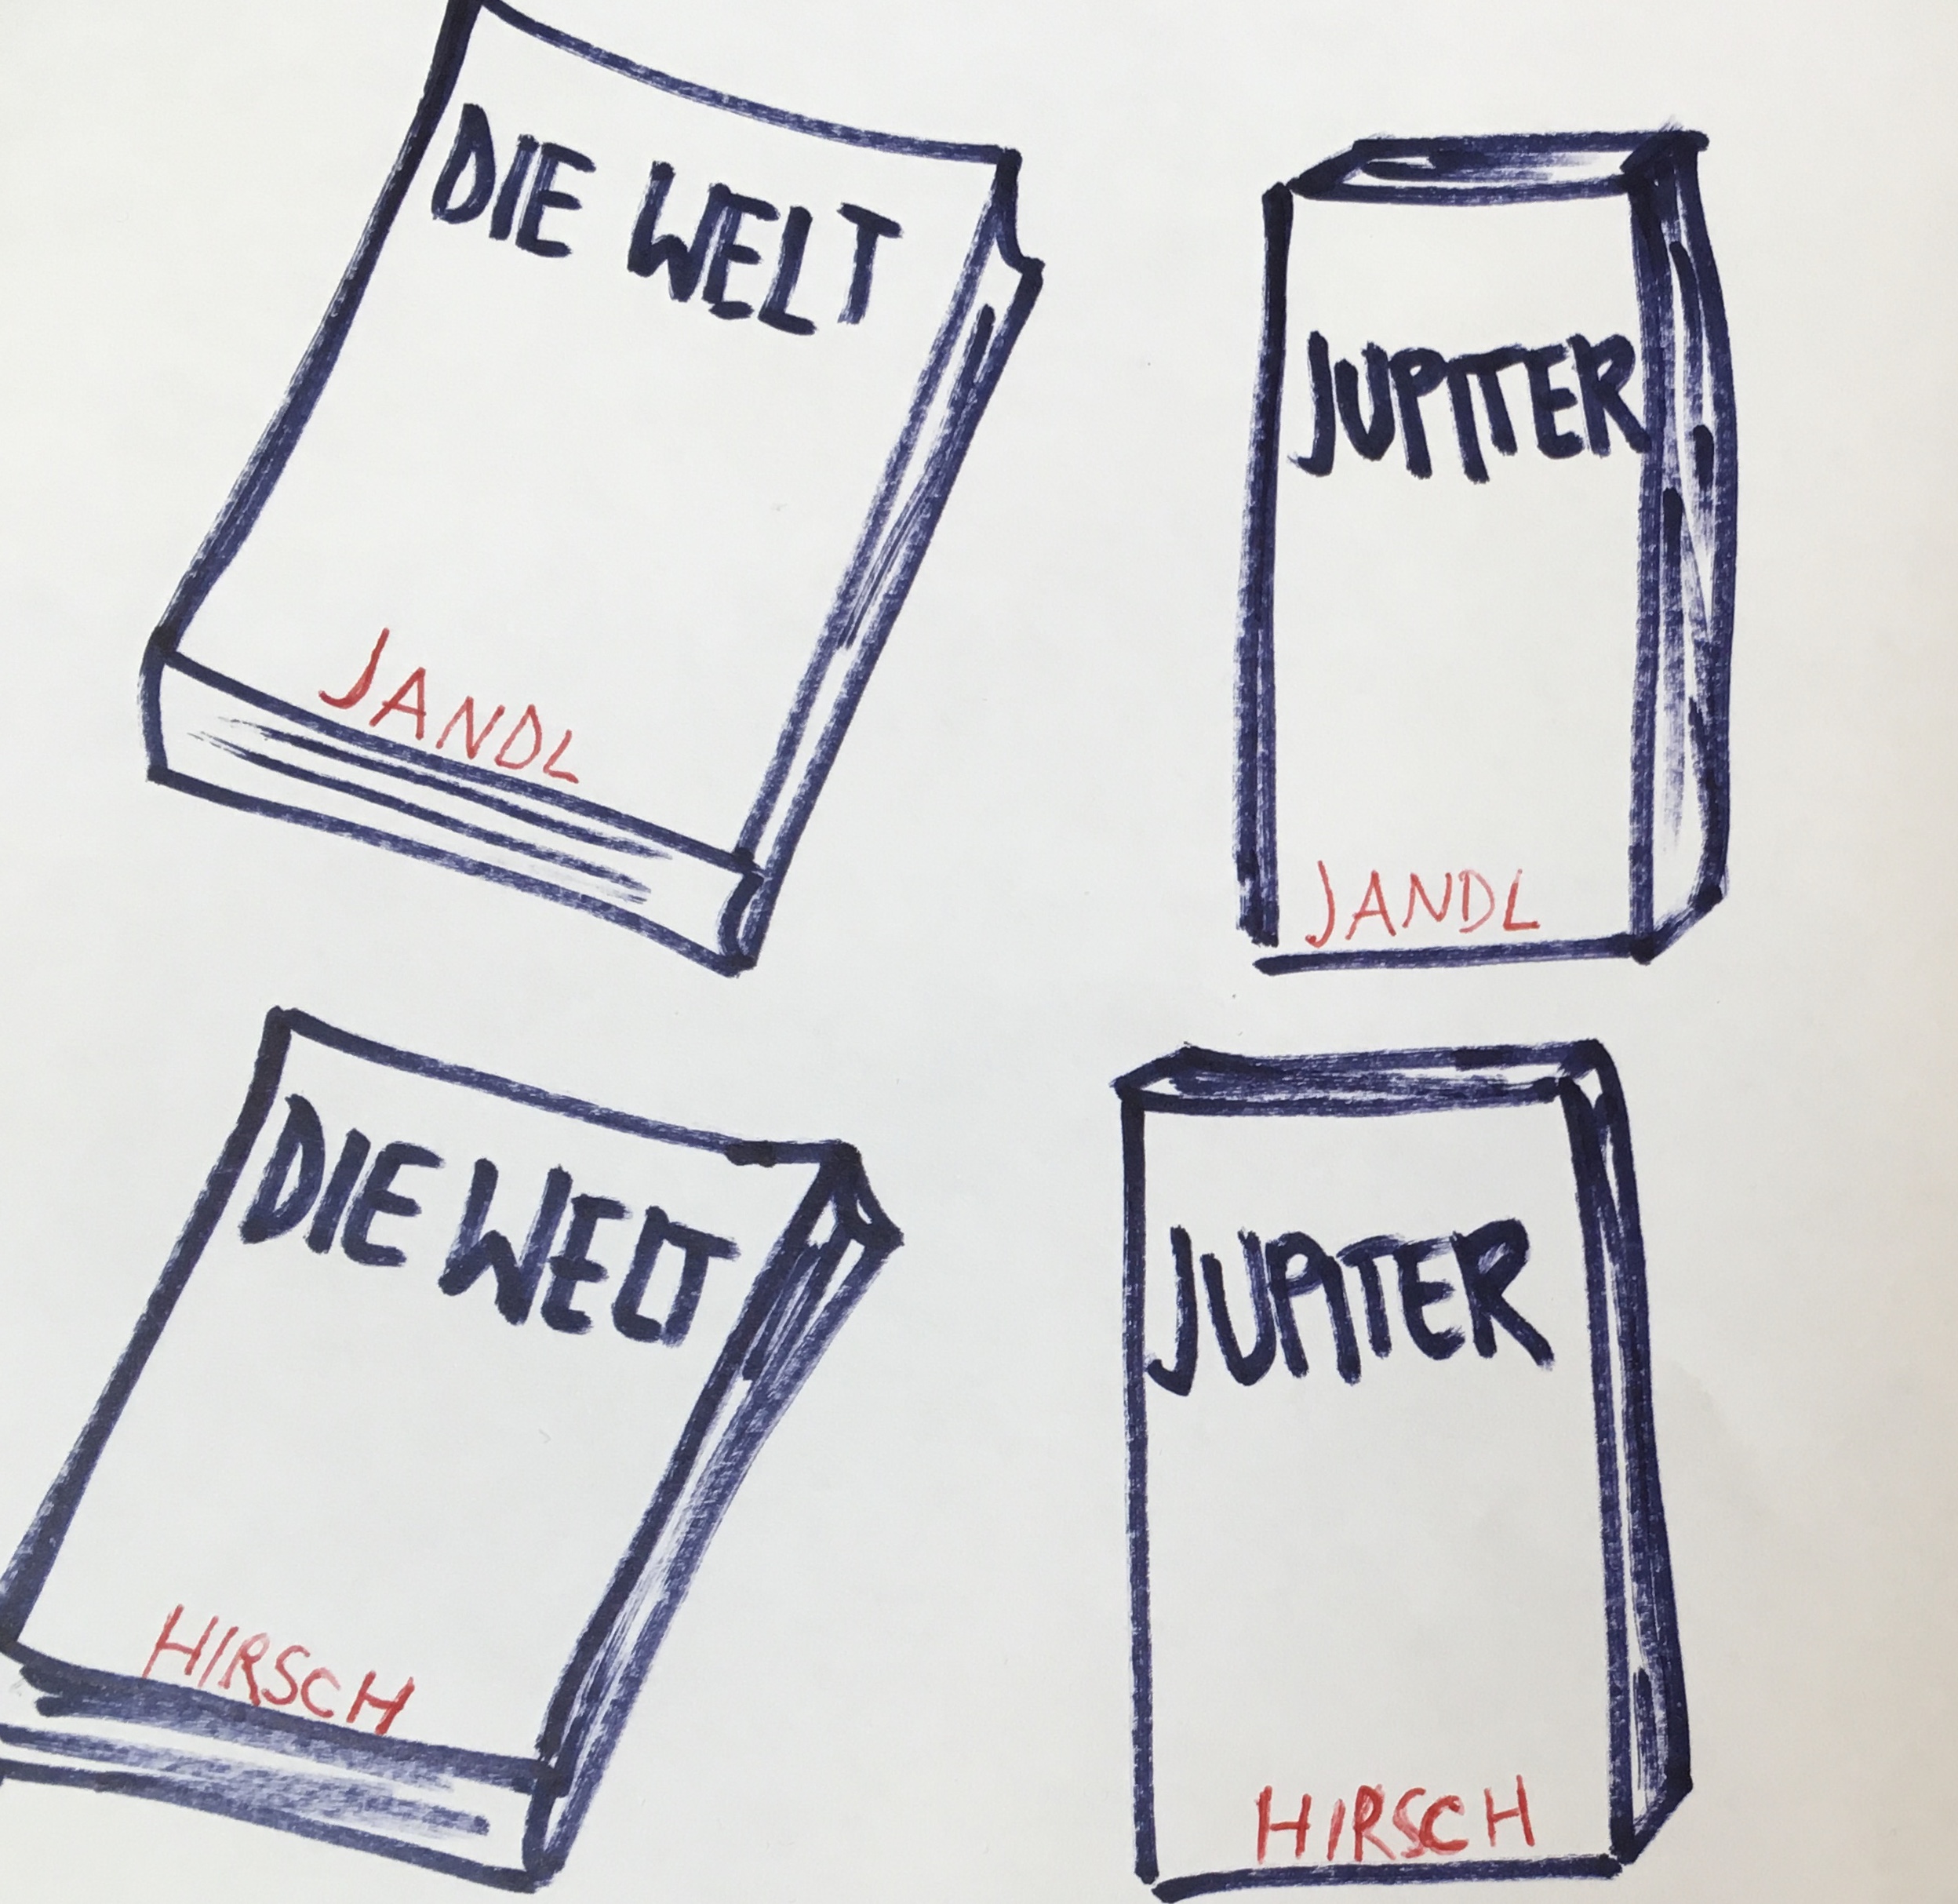 DIE WELT
JANDL
JUPITER
JANDL
DIE WELT
HIRSCH
JUPITER
HIRSCH